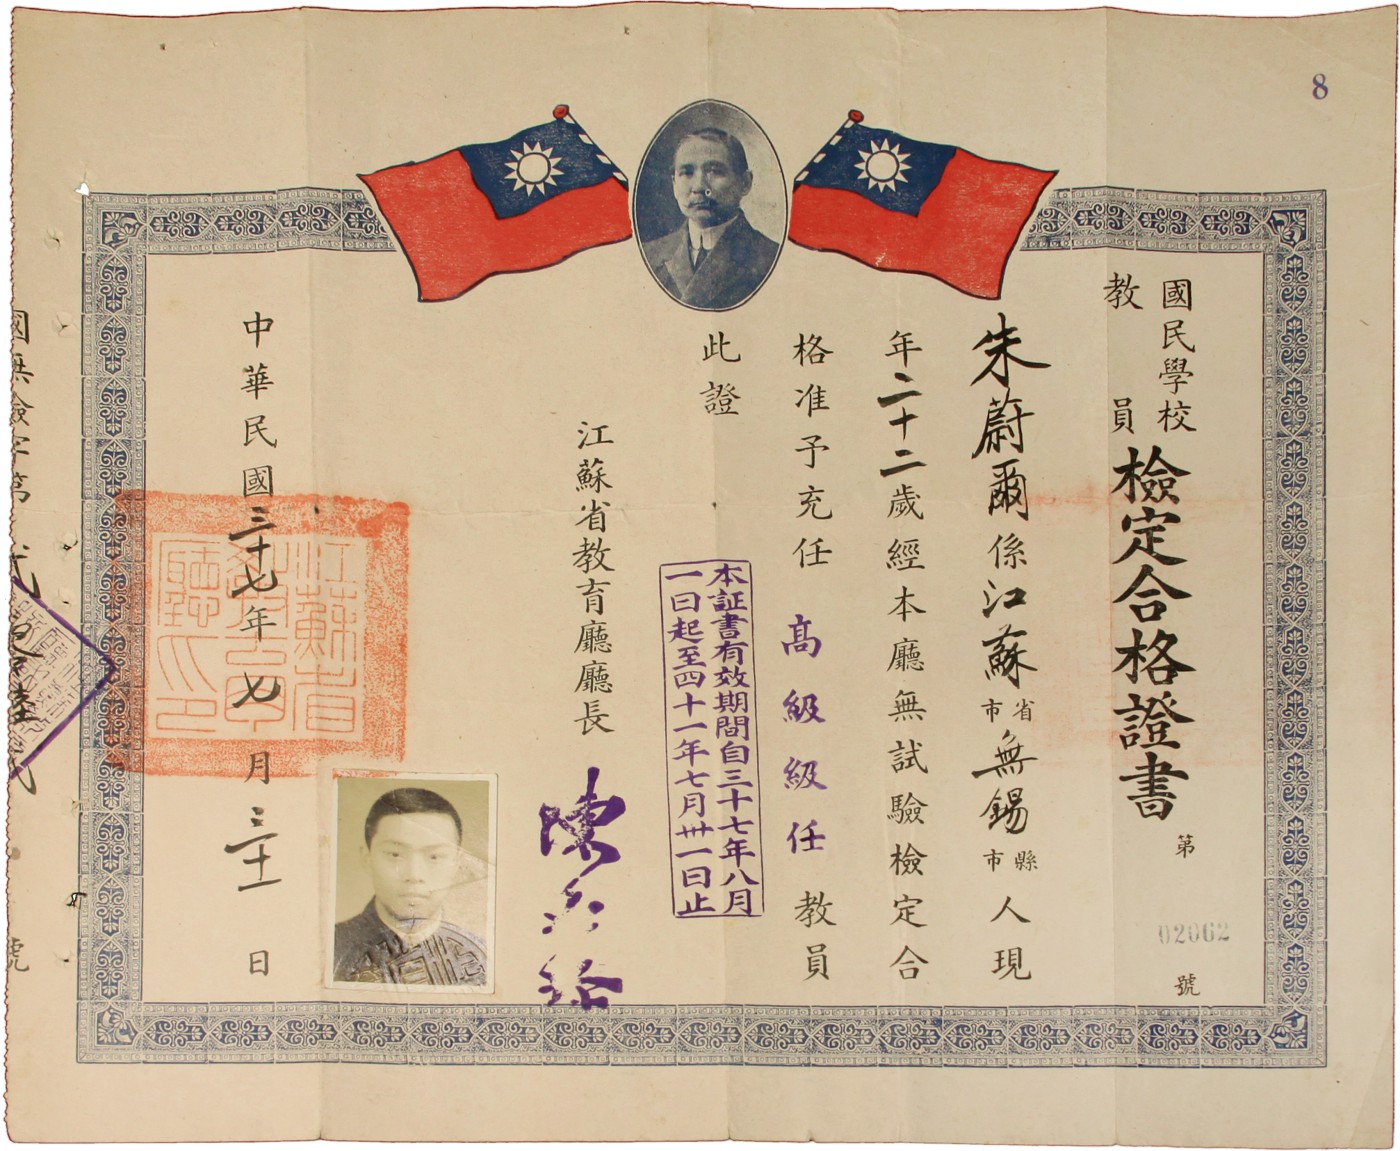 8
國民學校
教員
檢定合格證書
第 02062 號
朱蔚爾係江蘇省市無錫縣市人現
年二十二歲經本廳無試驗檢定合
格准予充任高級級任教員
此證
本証書有效期間自三十七年八月
一日起至四十一年七月卅一日止
江蘇省教育廳廳長
中華民國三十七年七月三十一日
江蘇省
教育
廳印
國無檢字第
號